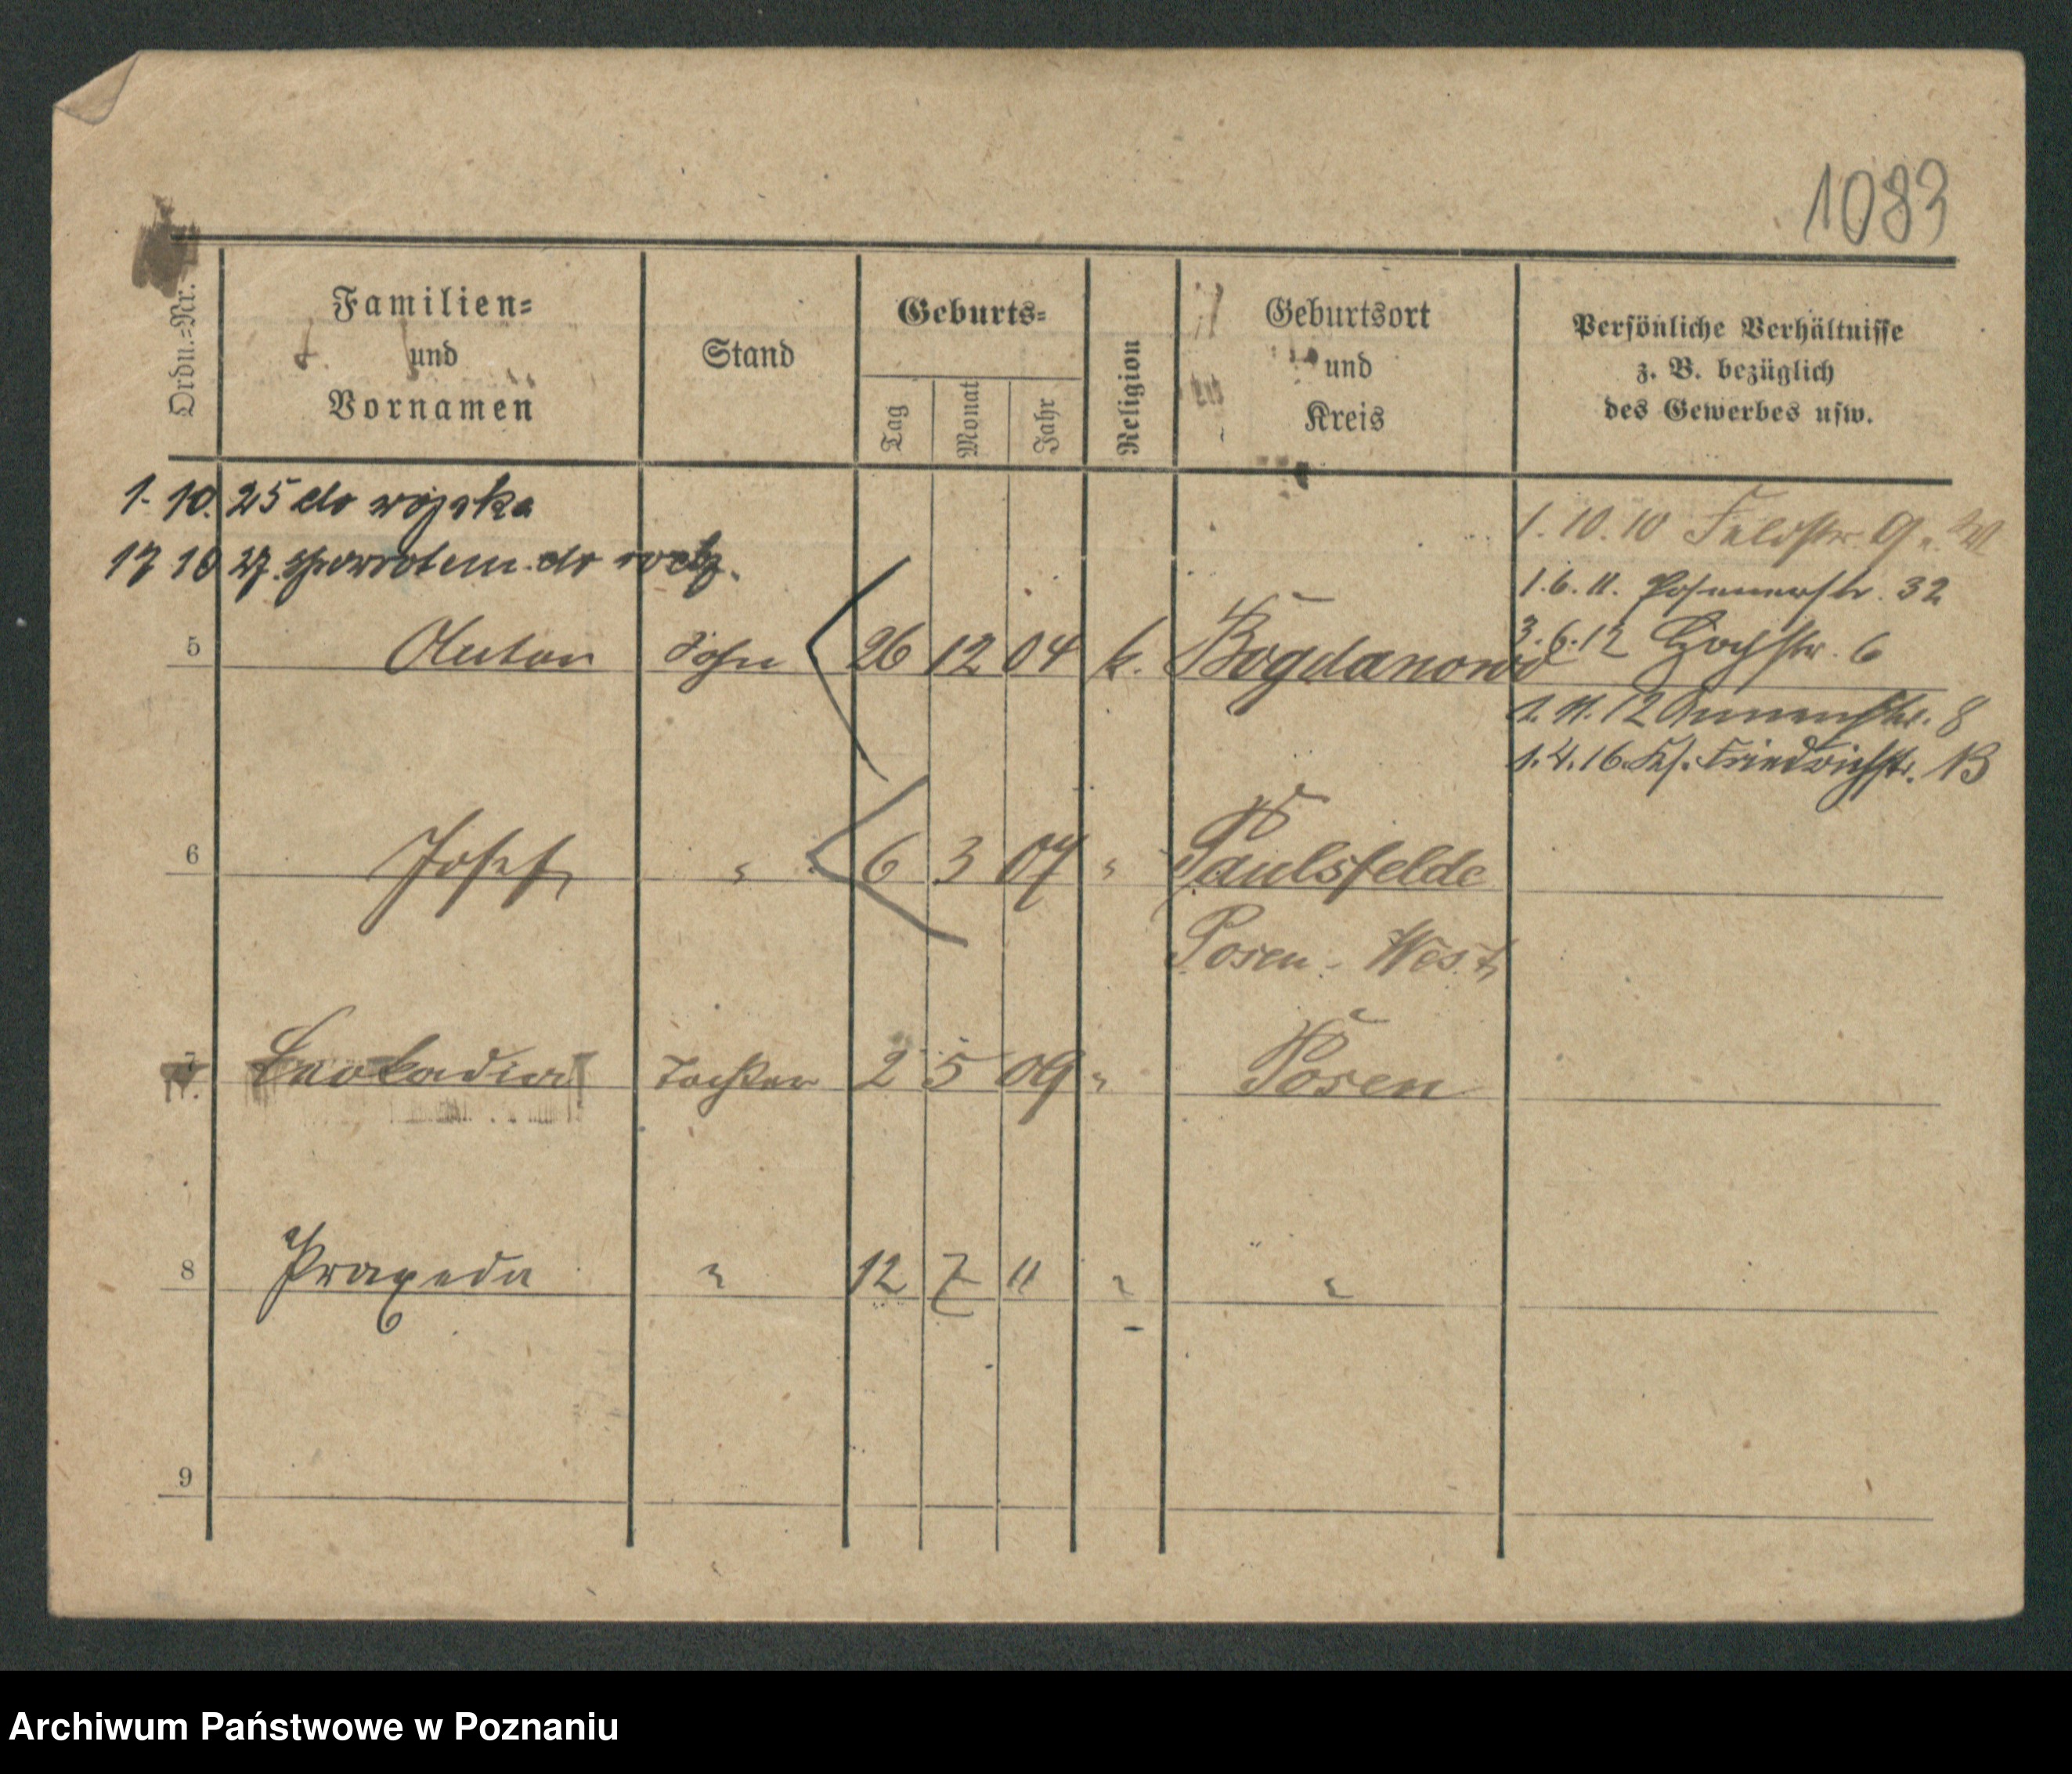 1083
Ordn.=Nr.
Familien=
und
Vornamen
Stand
Geburts=
Tag
Monat
Jahr
Religion
Geburtsort
und
Kreis
Persönliche Verhältnisse
z. B. bezüglich
des Gewerbes usw.
1. 10. 25 do wojska
17 10 27. zpowrotem do rodz.
1. 10. 10 Feldstr. 9
1. 6. 11. Posenerstr. 32
3. 6. 12 Hochstr. 6
1. 11. 12 Annenstr. 8
1. 4. 16. Ks. Friedrichstr. 13
5 Anton Sohn 26 12 04 k. Bogdanowo
6 Josef " 6 3 07 " Paulsfelde
Posen - West
7 Leokadia Tochter 2 5 09 " Posen
8 Praxeda " 12 7 11 " "
9
Archiwum Państwowe w Poznaniu